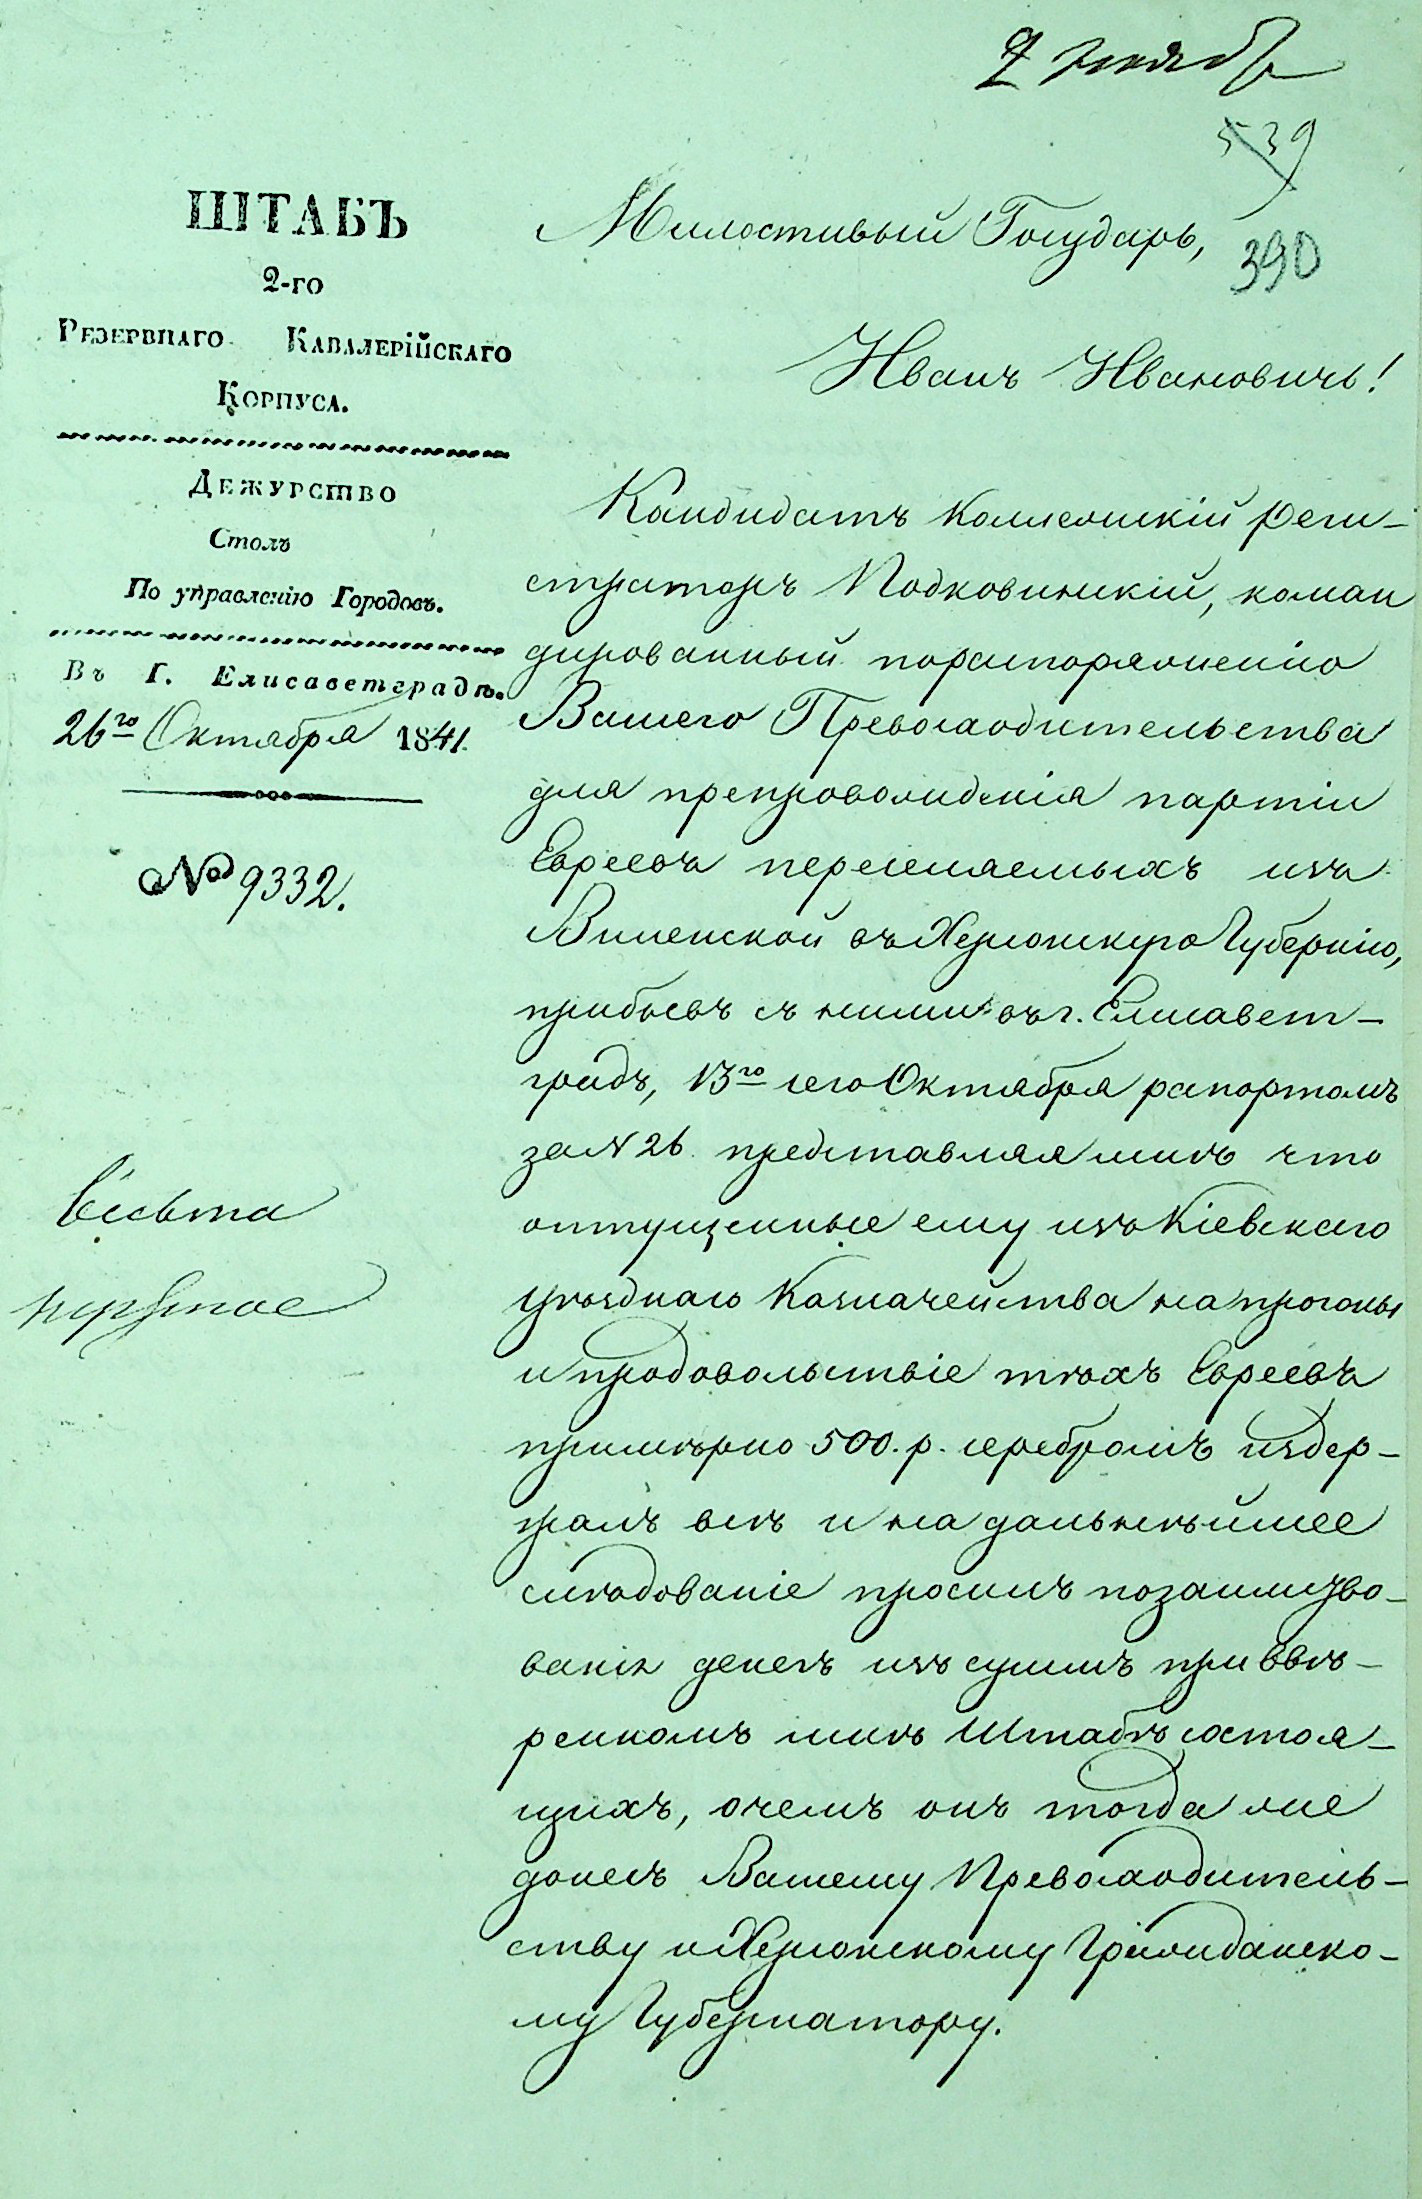 539
390
ШТАБЪ
2-го
Резервнаго Кавалерійскаго
Корпуса.
Дежурство
Столъ
По управленію Городовъ.
Въ Г. Елисаветградѣ.
26го Октября 1841.
№ 9332.
Милостивый Государь,
Иванъ Ивановичь!
Кандидатъ Коллежскій Реги-
страторъ Подковинскій, коман
дированный порапоряженію
Вашего Превосходительства
для препровожденія партіи
Евреевъ переселяемыхъ изъ
Виленской въ Херсонскую Губернію,
прибывъ съ ними въ г. Елисавет-
градъ, 13го сего Октября рапортомъ
за N 26. представляя мнѣ что
отпущенные ему изъ Кіевскаго
Уѣзднаго Казначейства на прогоны
и продовольствіе тѣхъ Евреевъ
примѣрно 500. р. серебромъ издер-
жалъ всѣ и на дальнѣйшее
слѣдованіе просилъ позаимство-
ванія денегъ изъ суммъ при ввѣ-
ренномъ мнѣ Штабѣ состоя-
щихъ, очемъ онъ тогда же
донесъ Вашему Превосходитель-
ству и Херсонскому Гражданско-
му Губернатору.